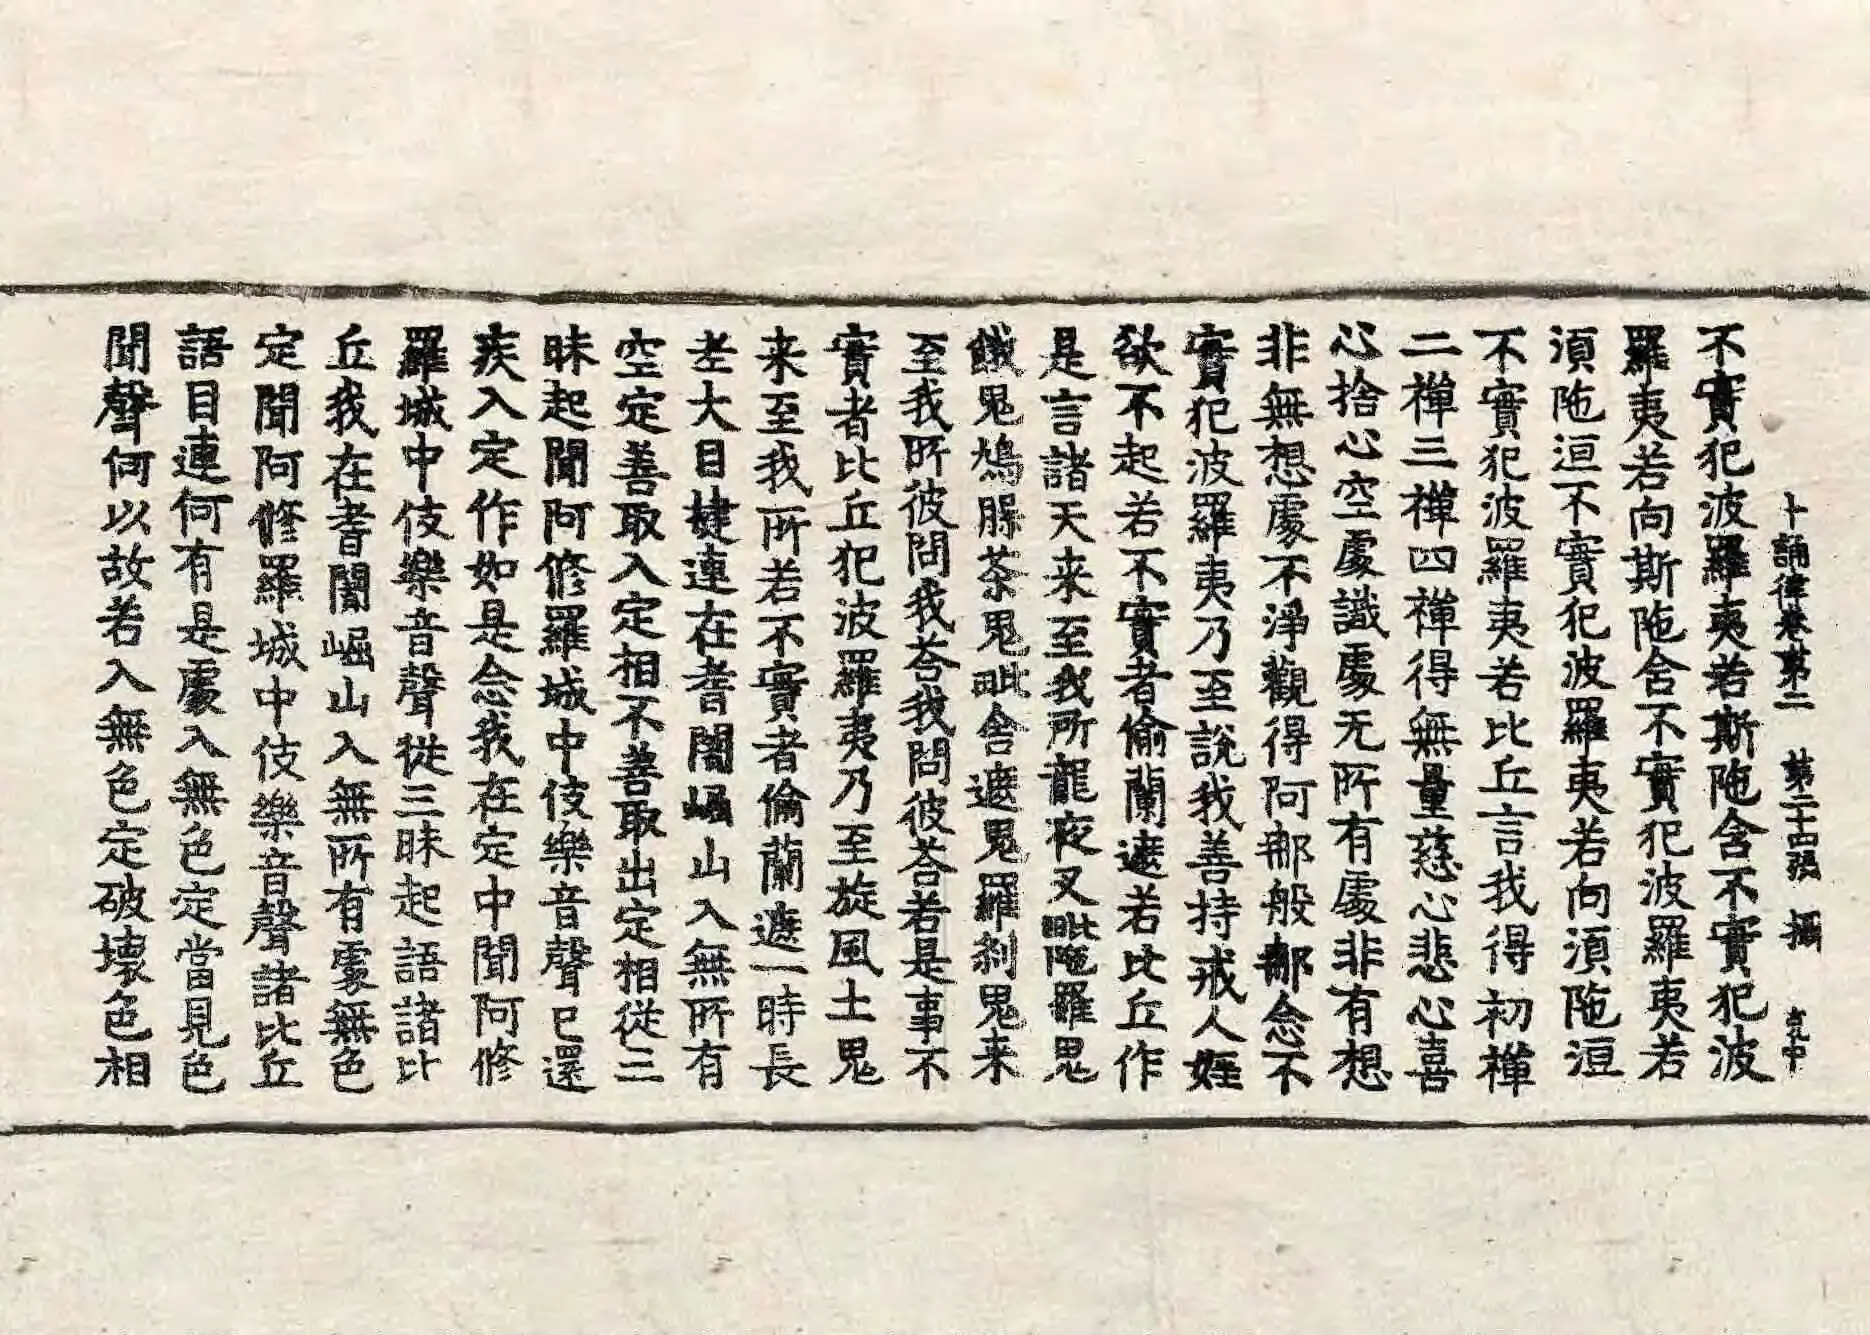 十誦律卷第二 第二十四張 攝
不實犯波羅夷若斯陁含不實犯波
羅夷若向斯陁含不實犯波羅夷若
湏陁洹不實犯波羅夷若向湏陁洹
不實犯波羅夷若比丘言我得初禪
二禪三禪四禪得無量慈心悲心喜
心捨心空處識處无所有處非有想
非無想處不淨觀得阿那般那念不
實犯波羅夷乃至說我善持戒人婬
欲不起若不實者偷蘭遮若比丘作
是言諸天来至我所龍夜叉毗陁羅鬼
餓鬼鳩腜荼鬼毗舍遮鬼羅刹鬼来
至我所彼問我荅我問彼荅若是事不
實者比丘犯波羅夷乃至旋風土鬼
来至我所若不實者偷蘭遮一時長
老大目揵連在耆闍崛山入無所有
空定善取入定相不善取出定相從三
昧起聞阿修羅城中伎樂音聲已還
疾入定作如是念我在定中聞阿修
羅城中伎樂音聲從三昧起語諸比
丘我在耆闍崛山入無所有處無色
定聞阿修羅城中伎樂音聲諸比丘
語目連何有是處入無色定當見色
聞聲何以故若入無色定破壞色相